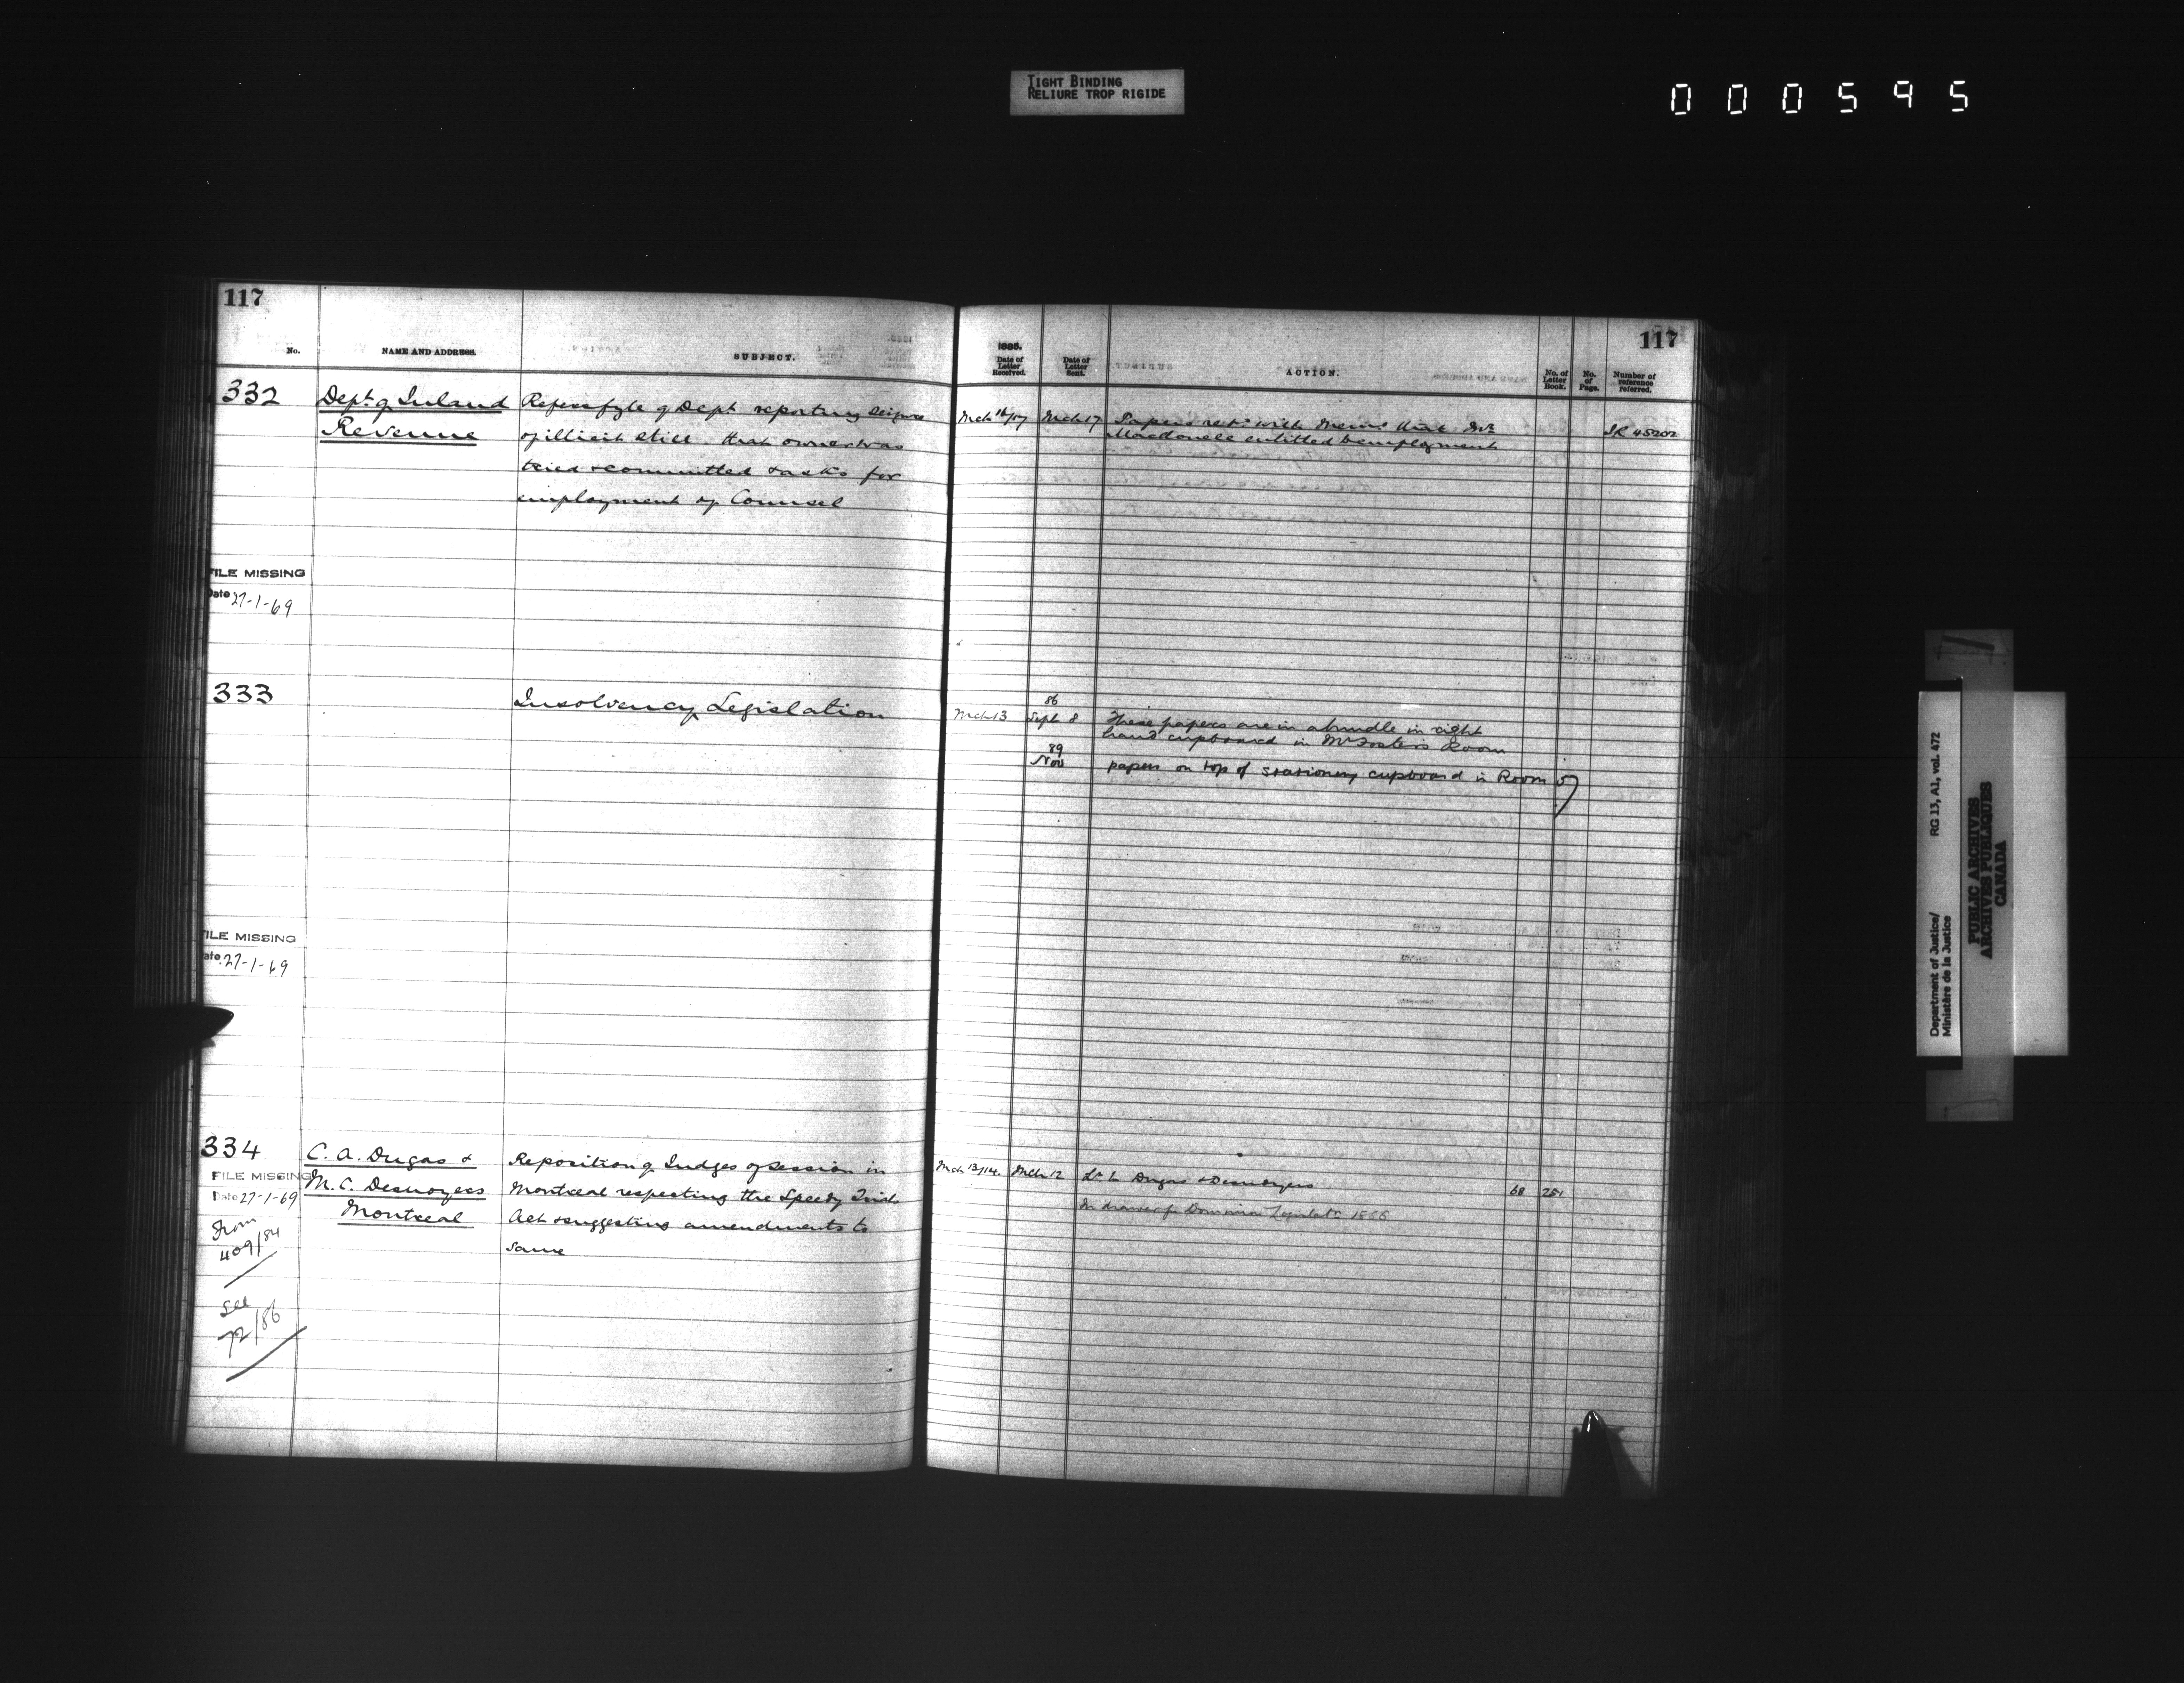 TIGHT BINDING
RELIURE TROP RIGIDE
000595
117
No.
NAME AND ADDRESS.
SUBJECT.
332
Dept. of Inland
Revenue
Refers fyle of Dept reporting seizure
of illicit still that owner was
tried & committed & asks for
employment of Counsel
FILE MISSING
Date 27-1-69
333
Insolvency Legislation
FILE MISSING
Date 27-1-69
334
C. A. Dugas &
M. C. Desnoyers
Montreal
of Judges of Session in
Montreal respecting the Speedy Trials
Act & suggesting amendments to
same
FILE MISSING
Date 27-1-69
From
409/84
See
72/86
117
1885.
Date of
Letter
Received.
Date of
Letter
Sent.
ACTION.
No. of
Letter
Book.
No.
of
Page.
Number of
reference
referred.
Mch 16/17
Mch 17
Papers retd. with Memo that Mr
Macdonell entitled to employment
IR 45202
Mch 13
86
Sept 8
These papers are in a bundle in right
hand cupboard in Mr Foster's Room
89
Nov
papers on top of stationery cupboard in Room 57
Mch 13/14.
Mch 12
Lr to Dugas & Desnoyers
68
251
In drawer Dominion 1886
Department of Justice/
Ministère de la Justice
RG 13, A1, vol. 472
PUBLIC ARCHIVES
ARCHIVES PUBLIQUES
CANADA